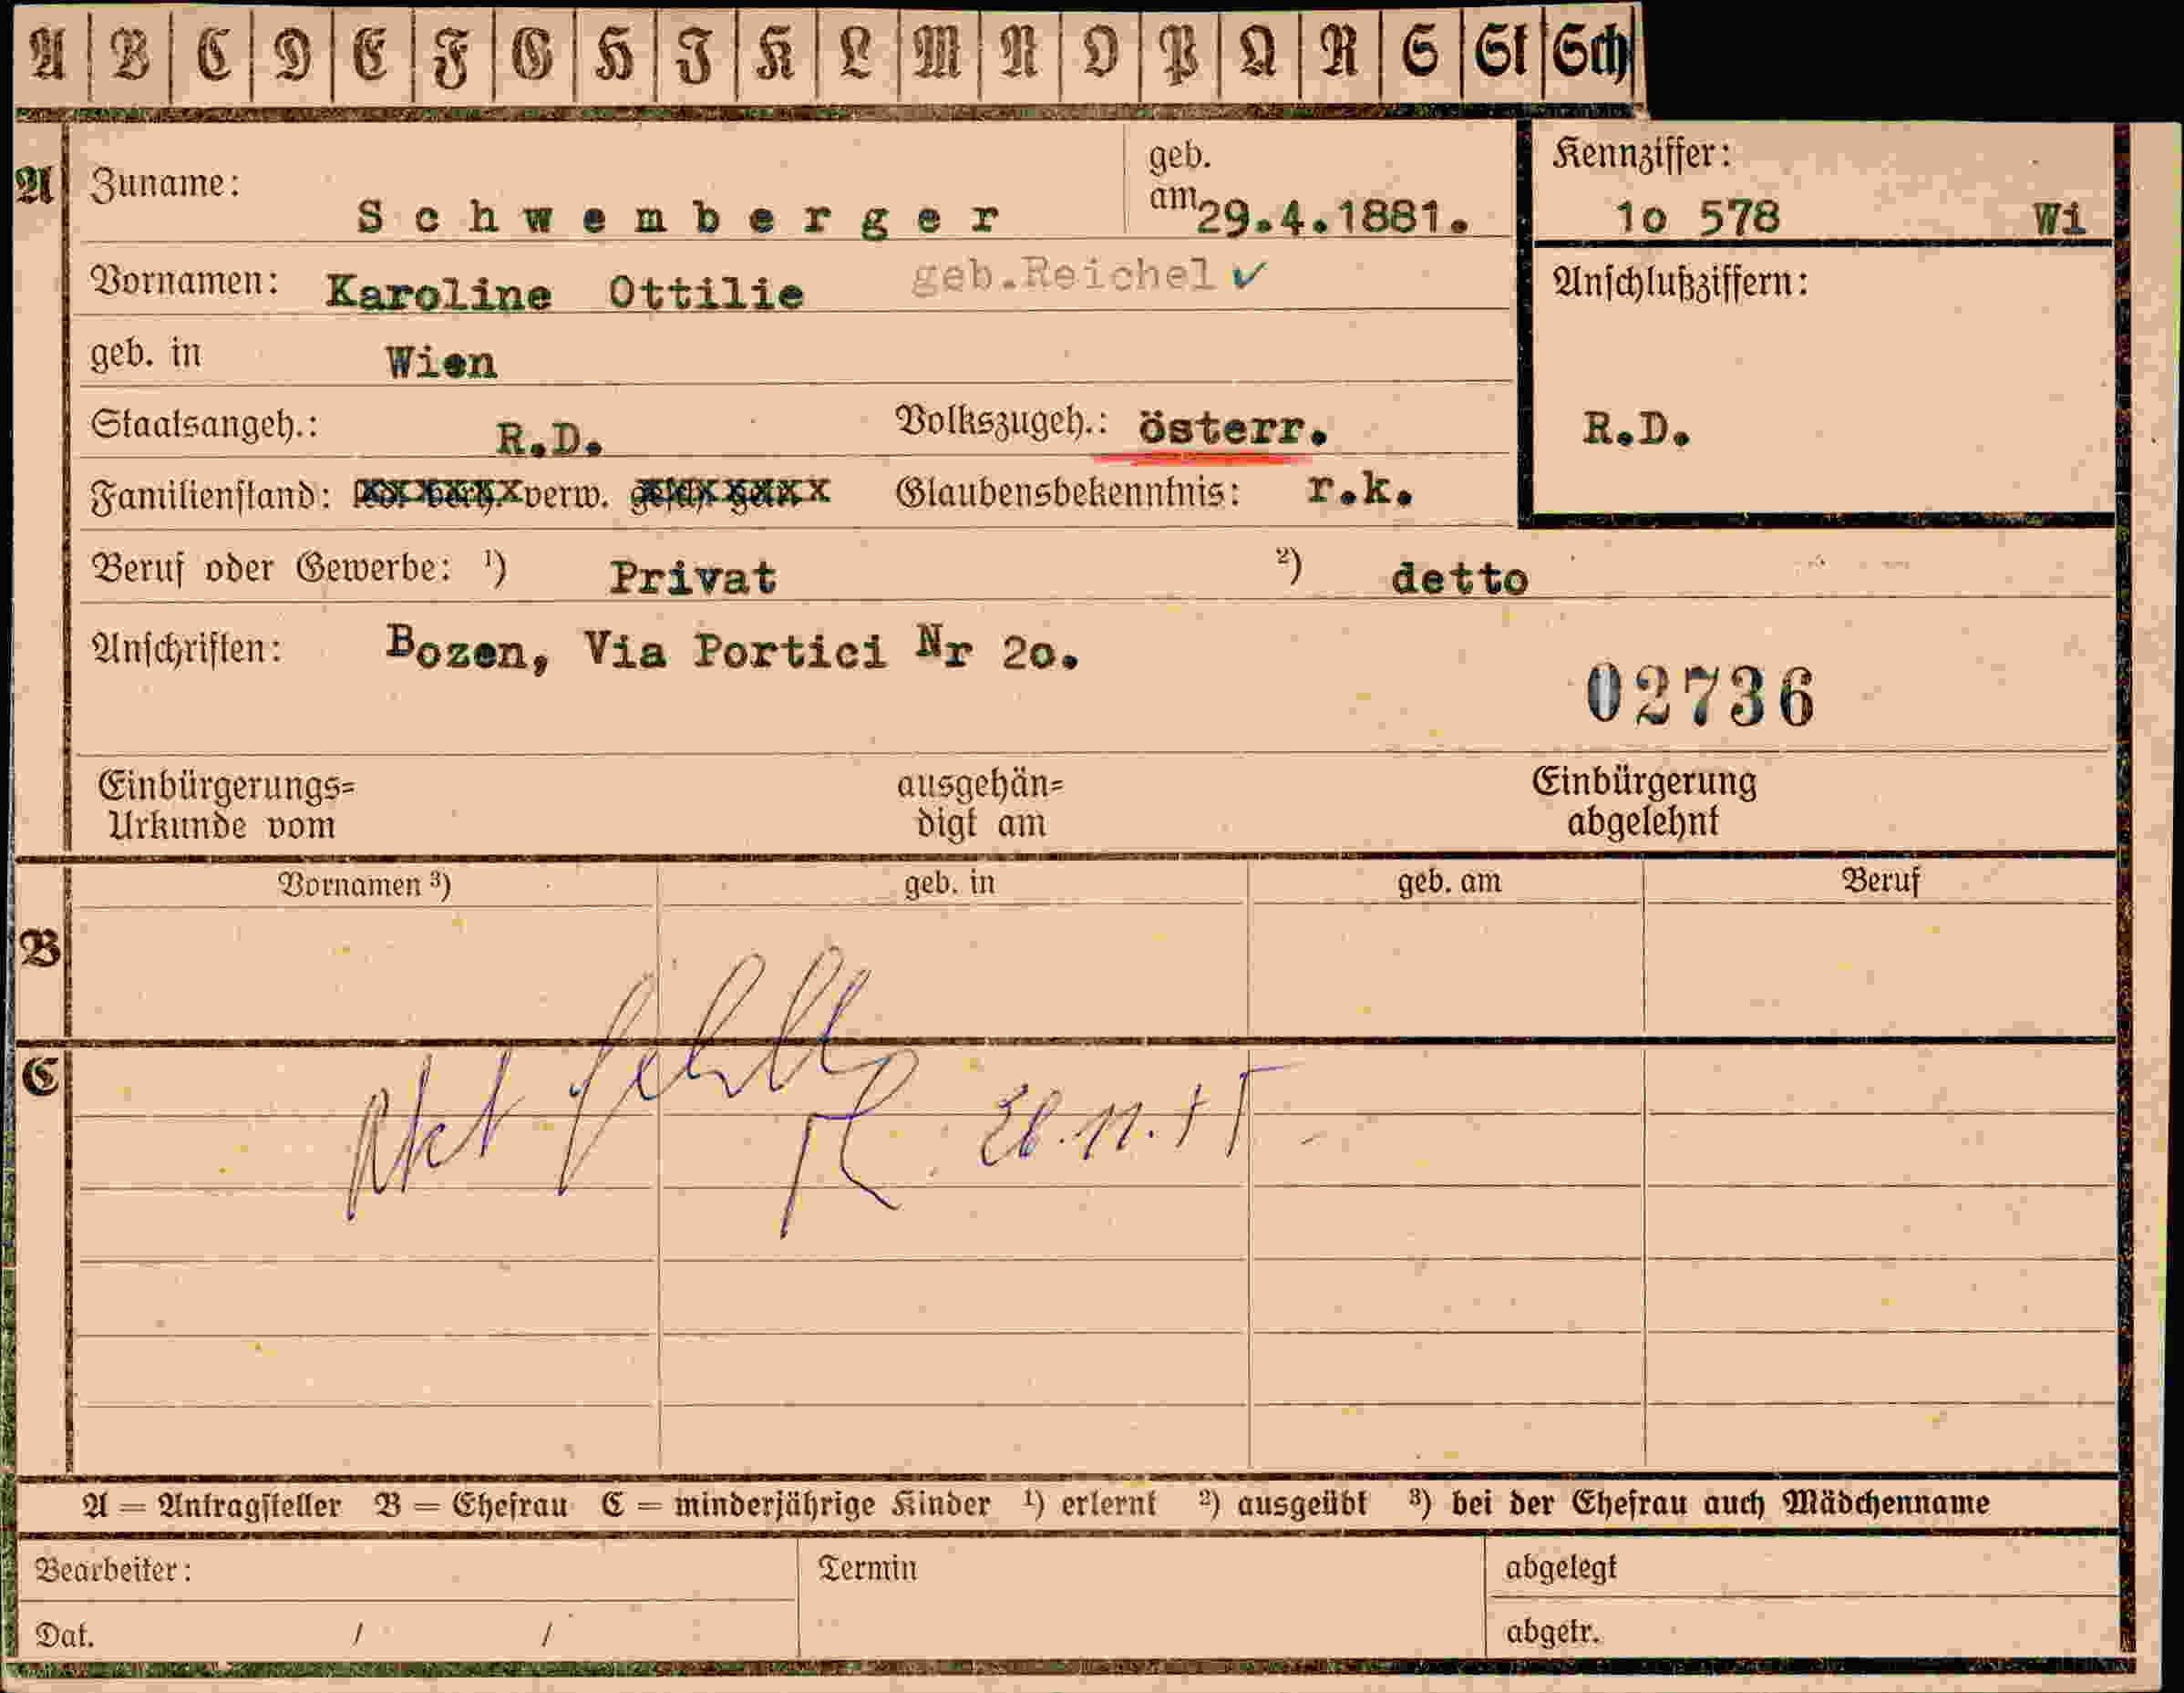 A B C D E F G H I K L M N O P Q R S St Sch
A Zuname: Schwemberger geb. am 29.4.1881. Kennziffer: 1o 578 Wi
Vornamen: Karoline Ottilie geb.Reichel ✓ Anschlußziffern:
geb. in Wien
Staatsangeh.: R.D. Volkszugeh.: österr. R.D.
Familienstand: verw. Glaubensbekenntnis: r.k.
Beruf oder Gewerbe: ¹) Privat ²) detto
Anschriften: Bozen, Via Portici Nr 2o.
02736
Einbürgerungs= ausgehän= Einbürgerung
Urkunde vom digt am abgelehnt
Vornamen ³) geb. in geb. am Beruf
B
C
Akt fehlt
28.11.55
A = Antragsteller B = Ehefrau C = minderjährige Kinder ¹) erlernt ²) ausgeübt ³) bei der Ehefrau auch Mädchenname
Bearbeiter: Termin abgelegt
Dat. / / abgetr.